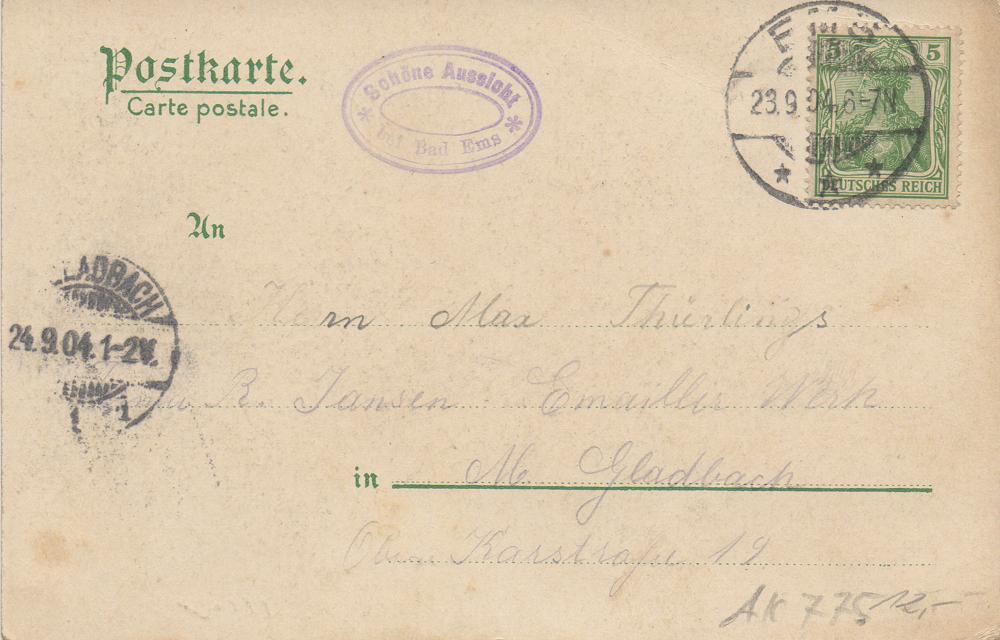 Postkarte.
Carte postale.
* Schöne Aussicht *
bei Bad Ems
EMS
23.9.04. 6-7N.
5 5
DEUTSCHES REICH
An
GLADBACH
24.9.04. 1-2V.
Herrn Max Thürlings
R. Jansen Emaillir Werk
in M. Gladbach
Karstraße 19
AK 775 12,-